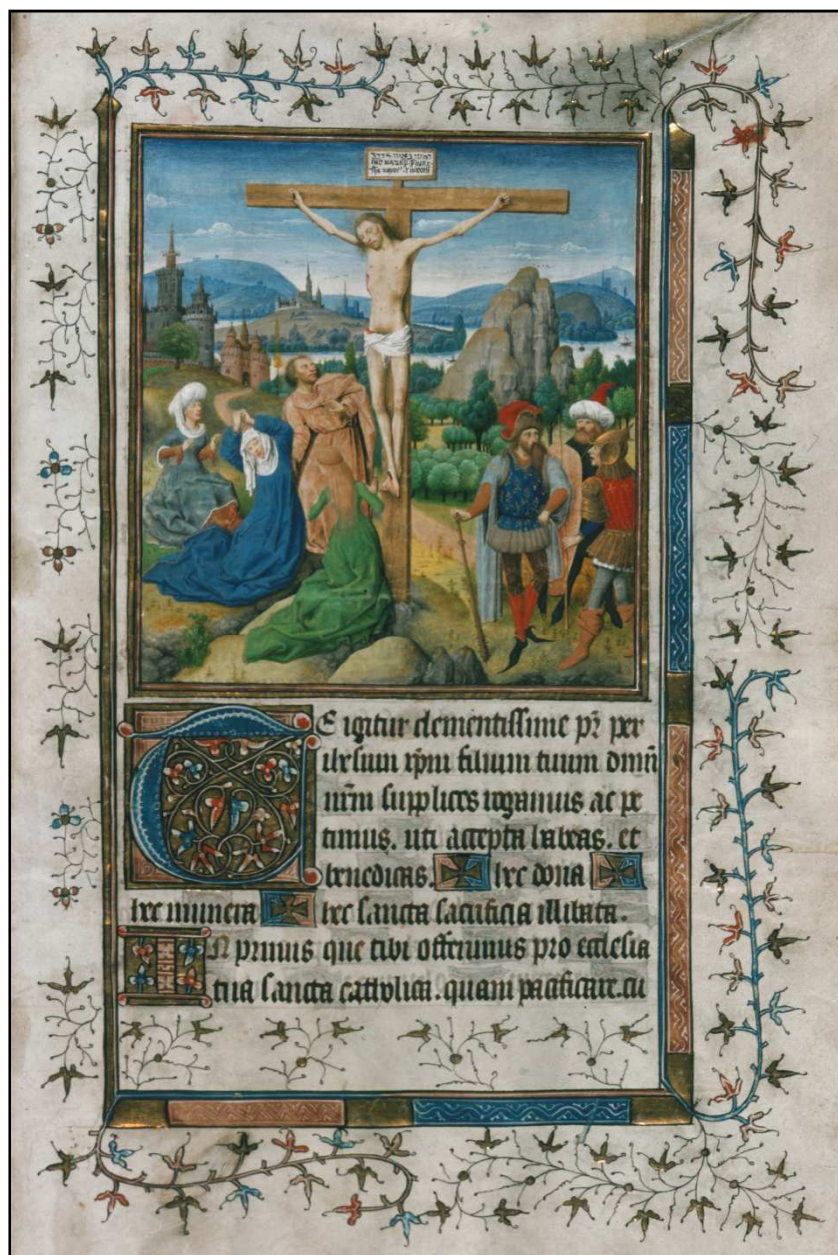 Te igitur clementissime pr per
ihesum xpm filium tuum dnm
nrm supplices rogamus ac pe
timus. uti accepta habeas. et
benedicas. ✠ hec dona ✠
hec munera ✠ hec sancta sacrificia illibata.
In primis que tibi offerimus pro ecclesia
tua sancta catholica. quam pacificare. cu